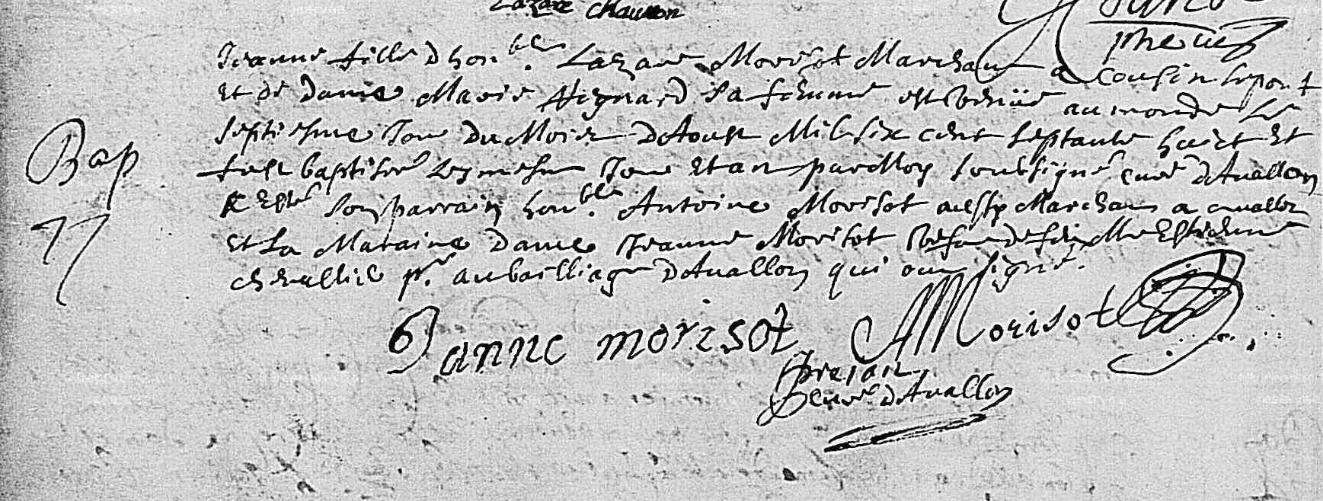 Lazare Chauvon
Jeanne fille d honble. Lazare Morisot Marchant a Cousin lepont
Bap
et de dame Marie Hignard sa femme est venue au monde le
septiesme Jour du Mois d'Aoust Mil six cent septante huict et
fust baptisée lesmesme Jour et an par Moy soussigné curé d'Avallon
son parrain honble. Antoine Morisot aussy Marchant a avallon
et la Maraine dame Jeanne Morisot vefve de feu Me Estienne
chevallier pr. au bailliage d'Avallon qui ont signé.
Janne morisot AMorisot
curé d'Avallon